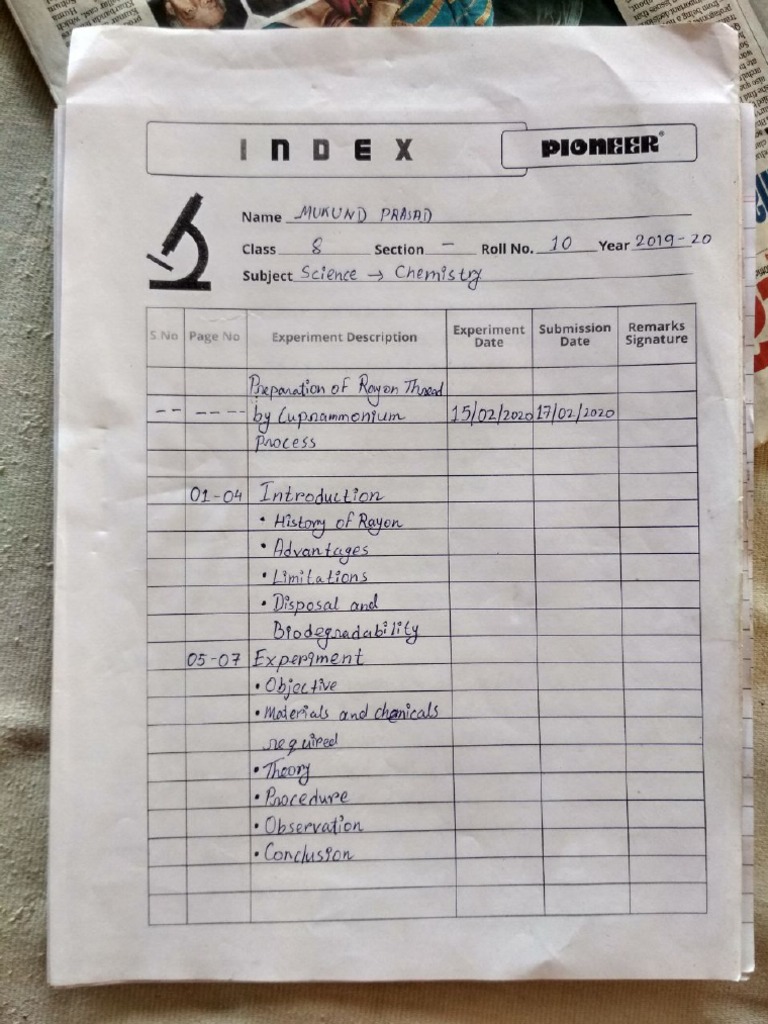 INDEX
PIONEER®
Name MUKUND PRASAD
Class 8 Section - Roll No. 10 Year 2019-20
Subject Science → Chemistry
S.No Page No Experiment Description Experiment Date Submission Date Remarks Signature
Preparation of Rayon Thread
-- ---- by Cuprammonium 15/02/2020 17/02/2020
Process
01-04 Introduction
• History of Rayon
• Advantages
• Limitations
• Disposal and
Biodegradability
05-07 Experiment
• Objective
• Materials and chemicals
required
• Theory
• Procedure
• Observation
• Conclusion